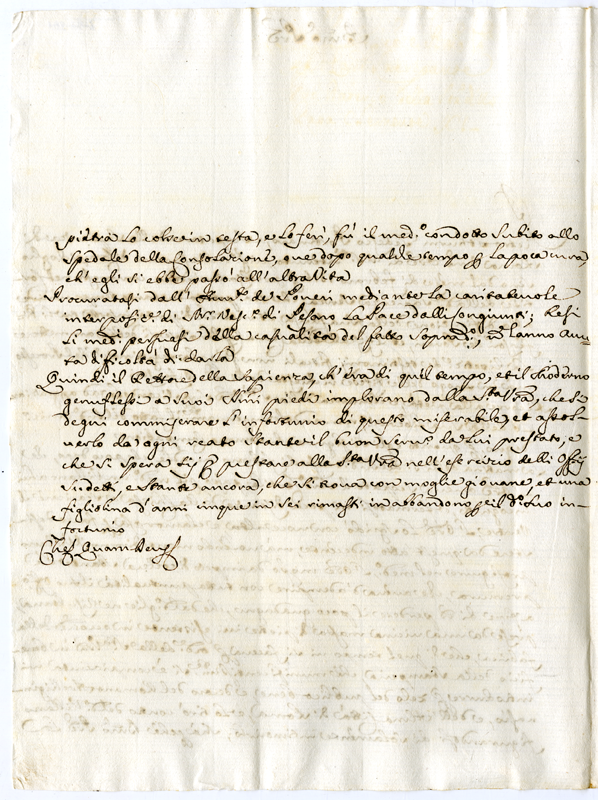 pietra lo colse in testa, e lo ferì, fù il med.º condotto subito allo
Spedale della Consolazione, ove dopo qualche tempo p la poca cura,
ch'egli si ebbe passò all'altra Vita
Procuratasi dall' de Poveri mediante la caritatevole
interposiz.e di Mr Vesc.º di Pesaro la Pace dalli Congiunti; Resi
li med.i persuasi della casualità del fatto soprad.º, non hanno avu-
ta dificoltà di darla
Quindi il Rettore della Sapienza, ch'era di quel tempo, et il Moderno
genuflessi a Suoi piedi implorano dalla S.tà Vra, che si
degni commiserare l'infortunio di questo miserabile, et assol-
verlo da ogni reato stante il buon serv.º da lui prestato, e
che si spera p prestare alla S.tà Vra nell'esercizio delli Offizj
sudetti, e stante ancora, che si trova con moglie giovane, et una
figliolina d'anni cinque in sei rimasti in abbandono p il d.º suo in-
fortunio
Che Quam Deus